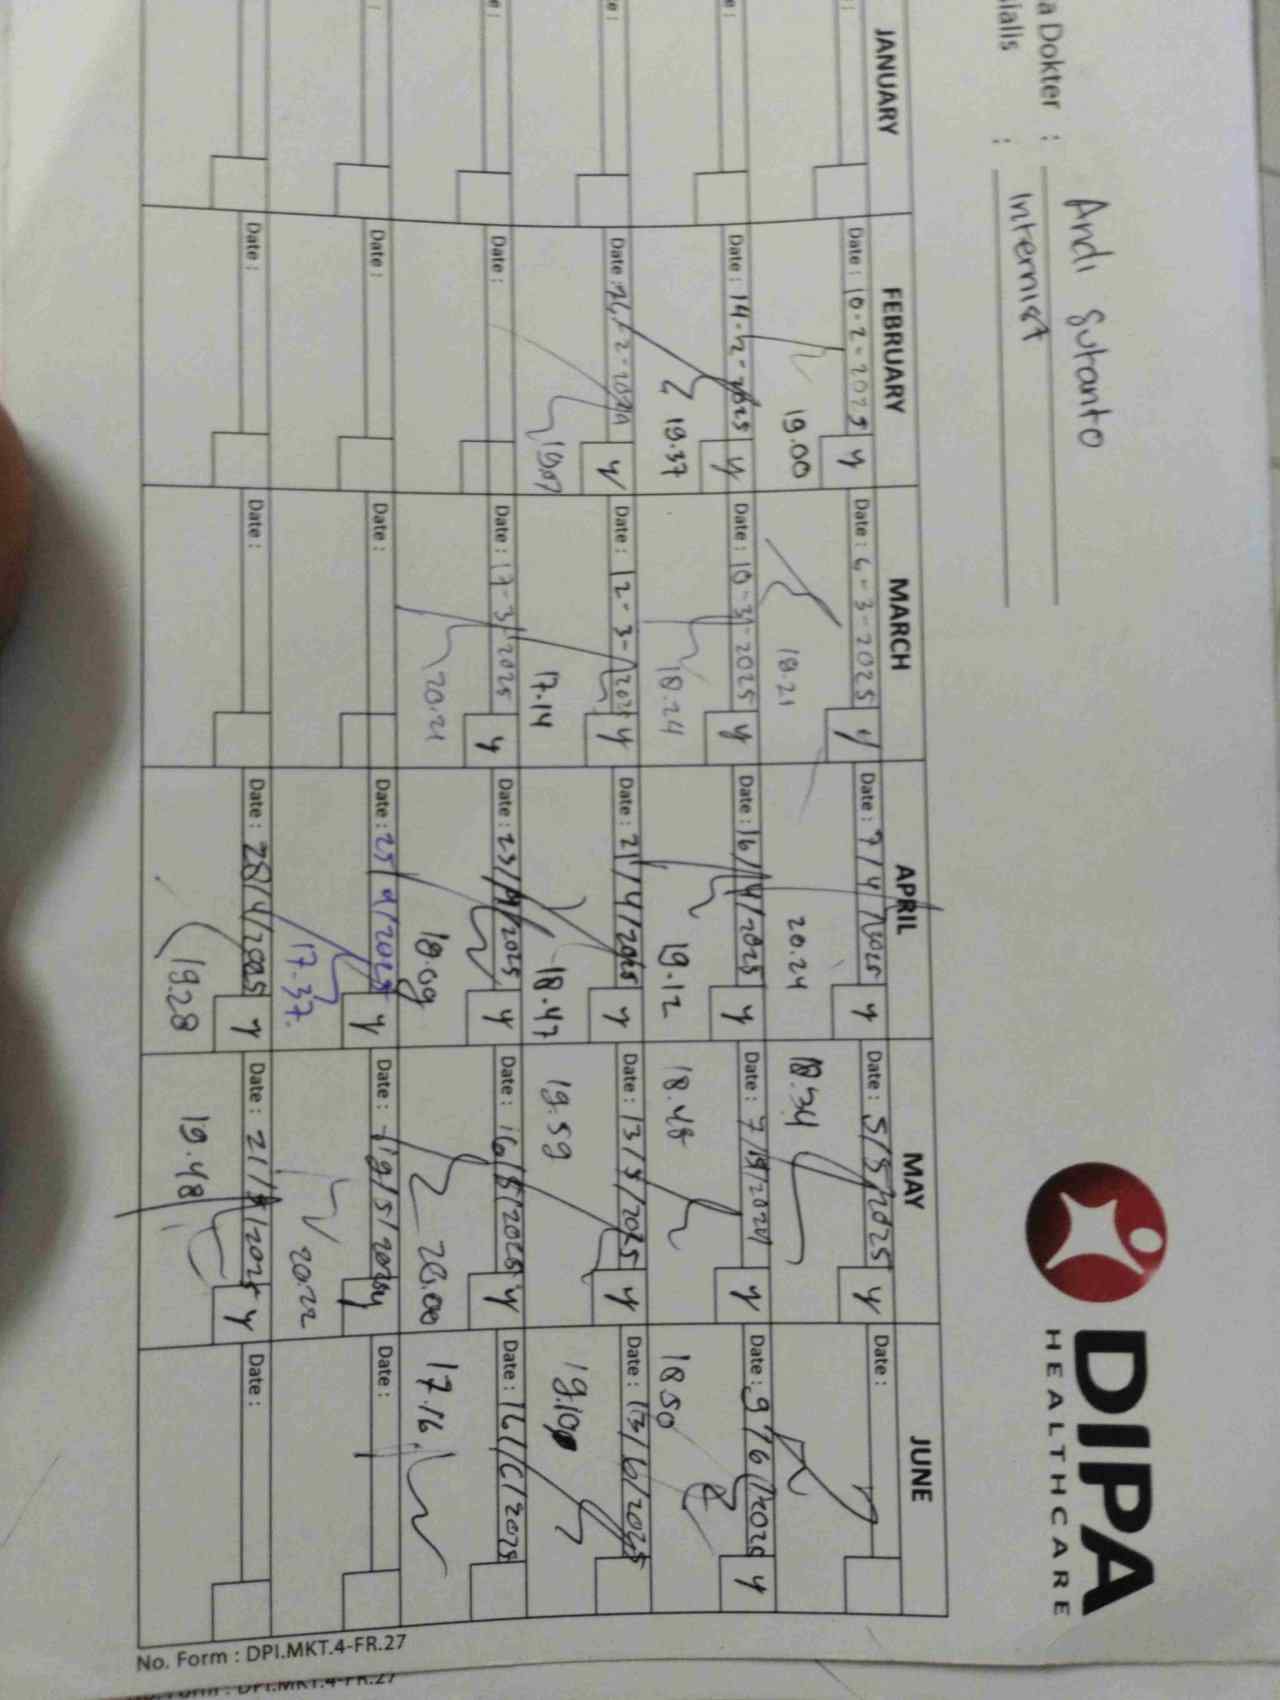 DIPA
HEALTHCARE
a Dokter : Andi Sutanto
ialis : Internist
JANUARY FEBRUARY MARCH APRIL MAY JUNE
Date : 10-2-2025 y
Date : 6-3-2025 y
Date : 9/4/2025 y
Date : 5/5/2025 y
Date :
19.00
18.21
20.24
18.34
Date : 14-2-2025 y
Date : 10-3-2025 y
Date : 16/4/2025 y
Date : 7/5/2024 y
Date : 9/6/2025 y
19.37
18.24
19.12
18.48
18.50
Date : y
Date : 12-3-2025 y
Date : 21/4/2025 y
Date : 13/5/2025 y
Date : 13/6/2025
19.07
17.14
18.47
19.59
19.10
Date :
Date : 17-3-2025 y
Date : 23/4/2025 y
Date : 16/5/2025 y
Date : 16/6/2025
20.21
18.09
20.00
17.16
Date :
Date :
Date : 25/4/2025 y
Date : 19/5/2025 y
Date :
17.37
20.22
Date :
Date :
Date : 28/4/2025 y
Date : 21/5/2025 y
Date :
19.28
19.48
No. Form : DPI.MKT.4-FR.27
No. Form : DPI.MKT.4-FR.27